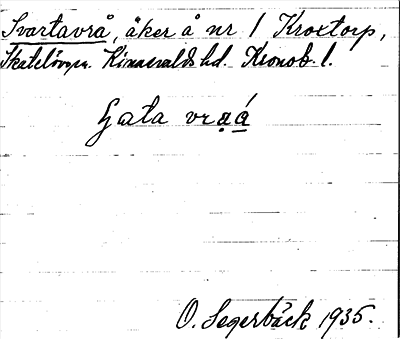 Svartavrå, åker å nr 1 Kroxtorp,
Skatelövs sn. Kinnevalds hd. Kronob. l.
vrạá
O. Segerbäck 1935.